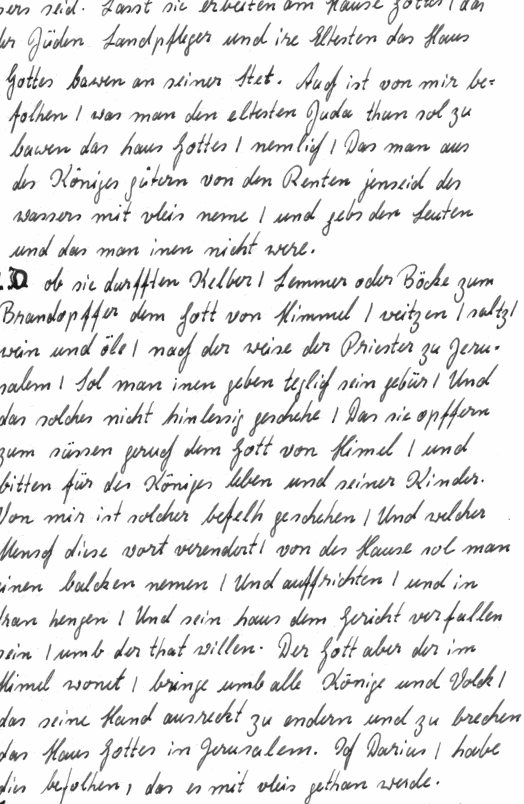 sers seid. Lasst sie erbeiten am Hause Gottes / das
der Jüden Landpfleger und ire Eltesten das Haus
Gottes bawen an seiner stet. Auch ist von mir be=
folhen / was man den eltesten Juda thun sol zu
bawen das haus Gottes / nemlich / Das man aus
des Königes gütern von den Renten jenseid des
wassers mit vleis neme / und gebs den Leuten
und das man inen nicht were.
D ob sie durfften Kelber / Lemmer oder Böcke zum
Brandopffer dem Gott von Himmel / veitzen / saltz /
wein und öle / nach der weise der Priester zu Jeru-
salem / Sol man inen geben teglich sein gebür / Und
das solches nicht hinlessig geschehe / Das sie opffern
zum süssen geruch dem Gott von Himel / und
bitten für des Königes leben und seiner Kinder.
Von mir ist solcher befelh geschehen / Und welcher
Mensch diese wort verendert / von des Hause sol man
einen balcken nemen / Und auffrichten / und in
dran hengen / Und sein haus dem Gericht verfallen
sein / umb der that willen. Der Gott aber der im
Himel wonet / bringe umb alle Könige und Volck /
das seine Hand ausreckt zu endern und zu brechen
das Haus Gottes in Jerusalem. Ich Darius / habe
dies befolhen, das es mit vleis gethan werde.